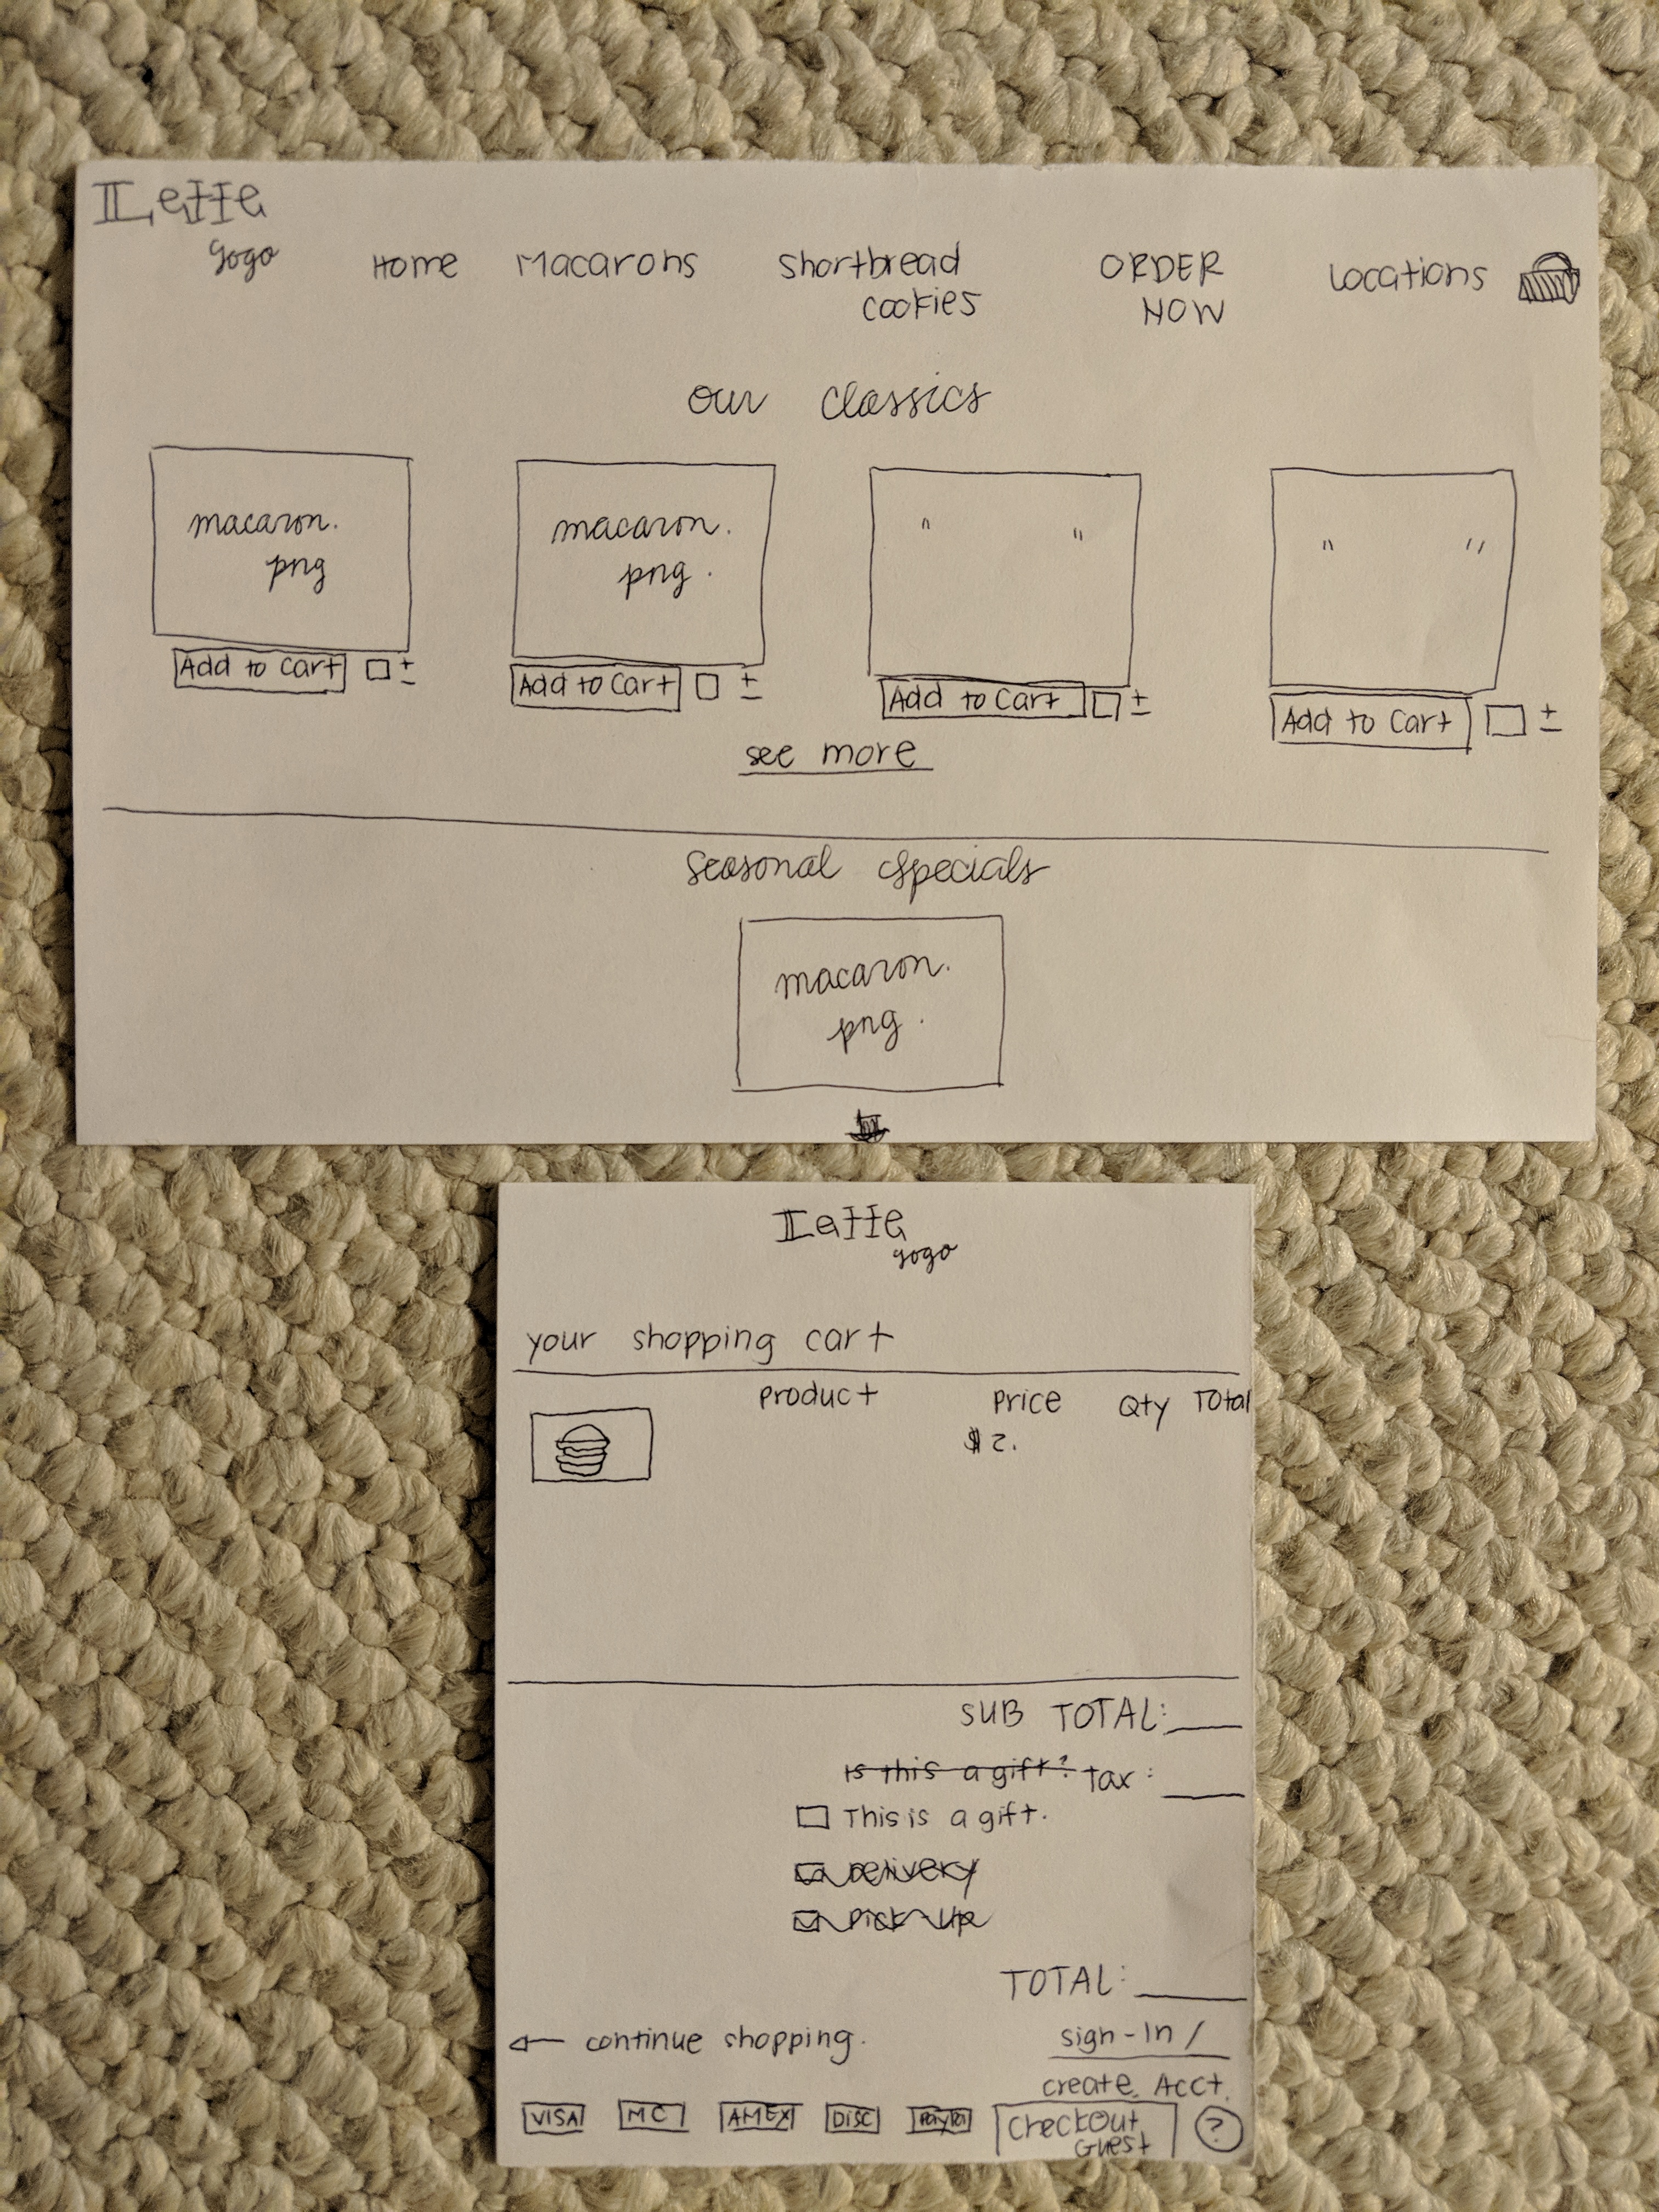 Lette
gogo
Home Macarons Shortbread ORDER Locations
cookies NOW
our classics
macaron. macaron. " " " "
png png.
Add to Cart + - Add to Cart + - Add to Cart + - Add to Cart + -
see more
Seasonal Specials
macaron.
png.
Lette
gogo
your shopping cart
Product Price Qty Total
$2.
SUB TOTAL:
Is this a gift? Tax:
This is a gift.
Delivery
Pick-Up
TOTAL:
← continue shopping.
sign-In /
create Acct.
VISA MC AMEX DISC PayPal Checkout ?
Guest